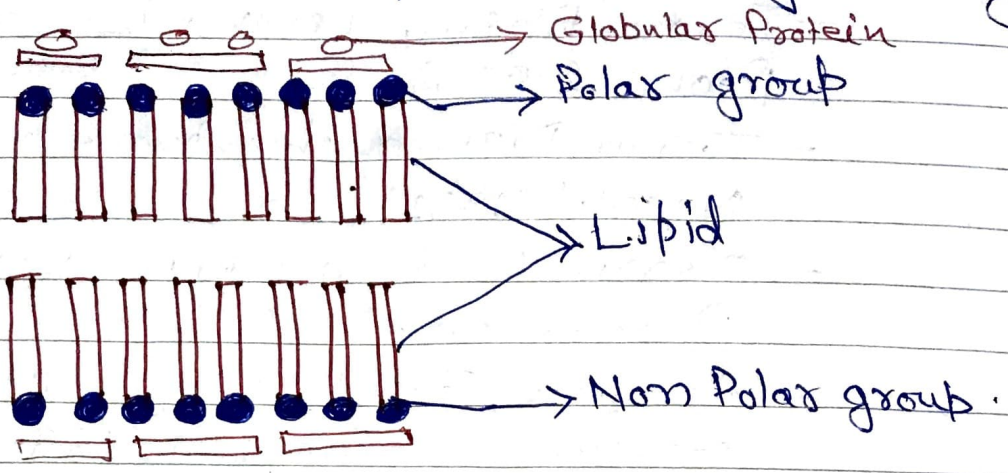 Globular Protein
Polar group
Lipid
Non Polar group.